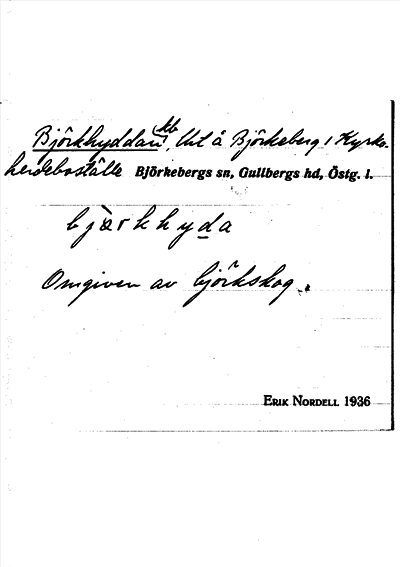 Björkhyddan, kb, lht å Björkeberg 1 Kyrko-
herdeboställe Björkebergs sn, Gullbergs hd, Östg. l.
bjærkhyda
Omgiven av björkskog.
ERIK NORDELL 1936